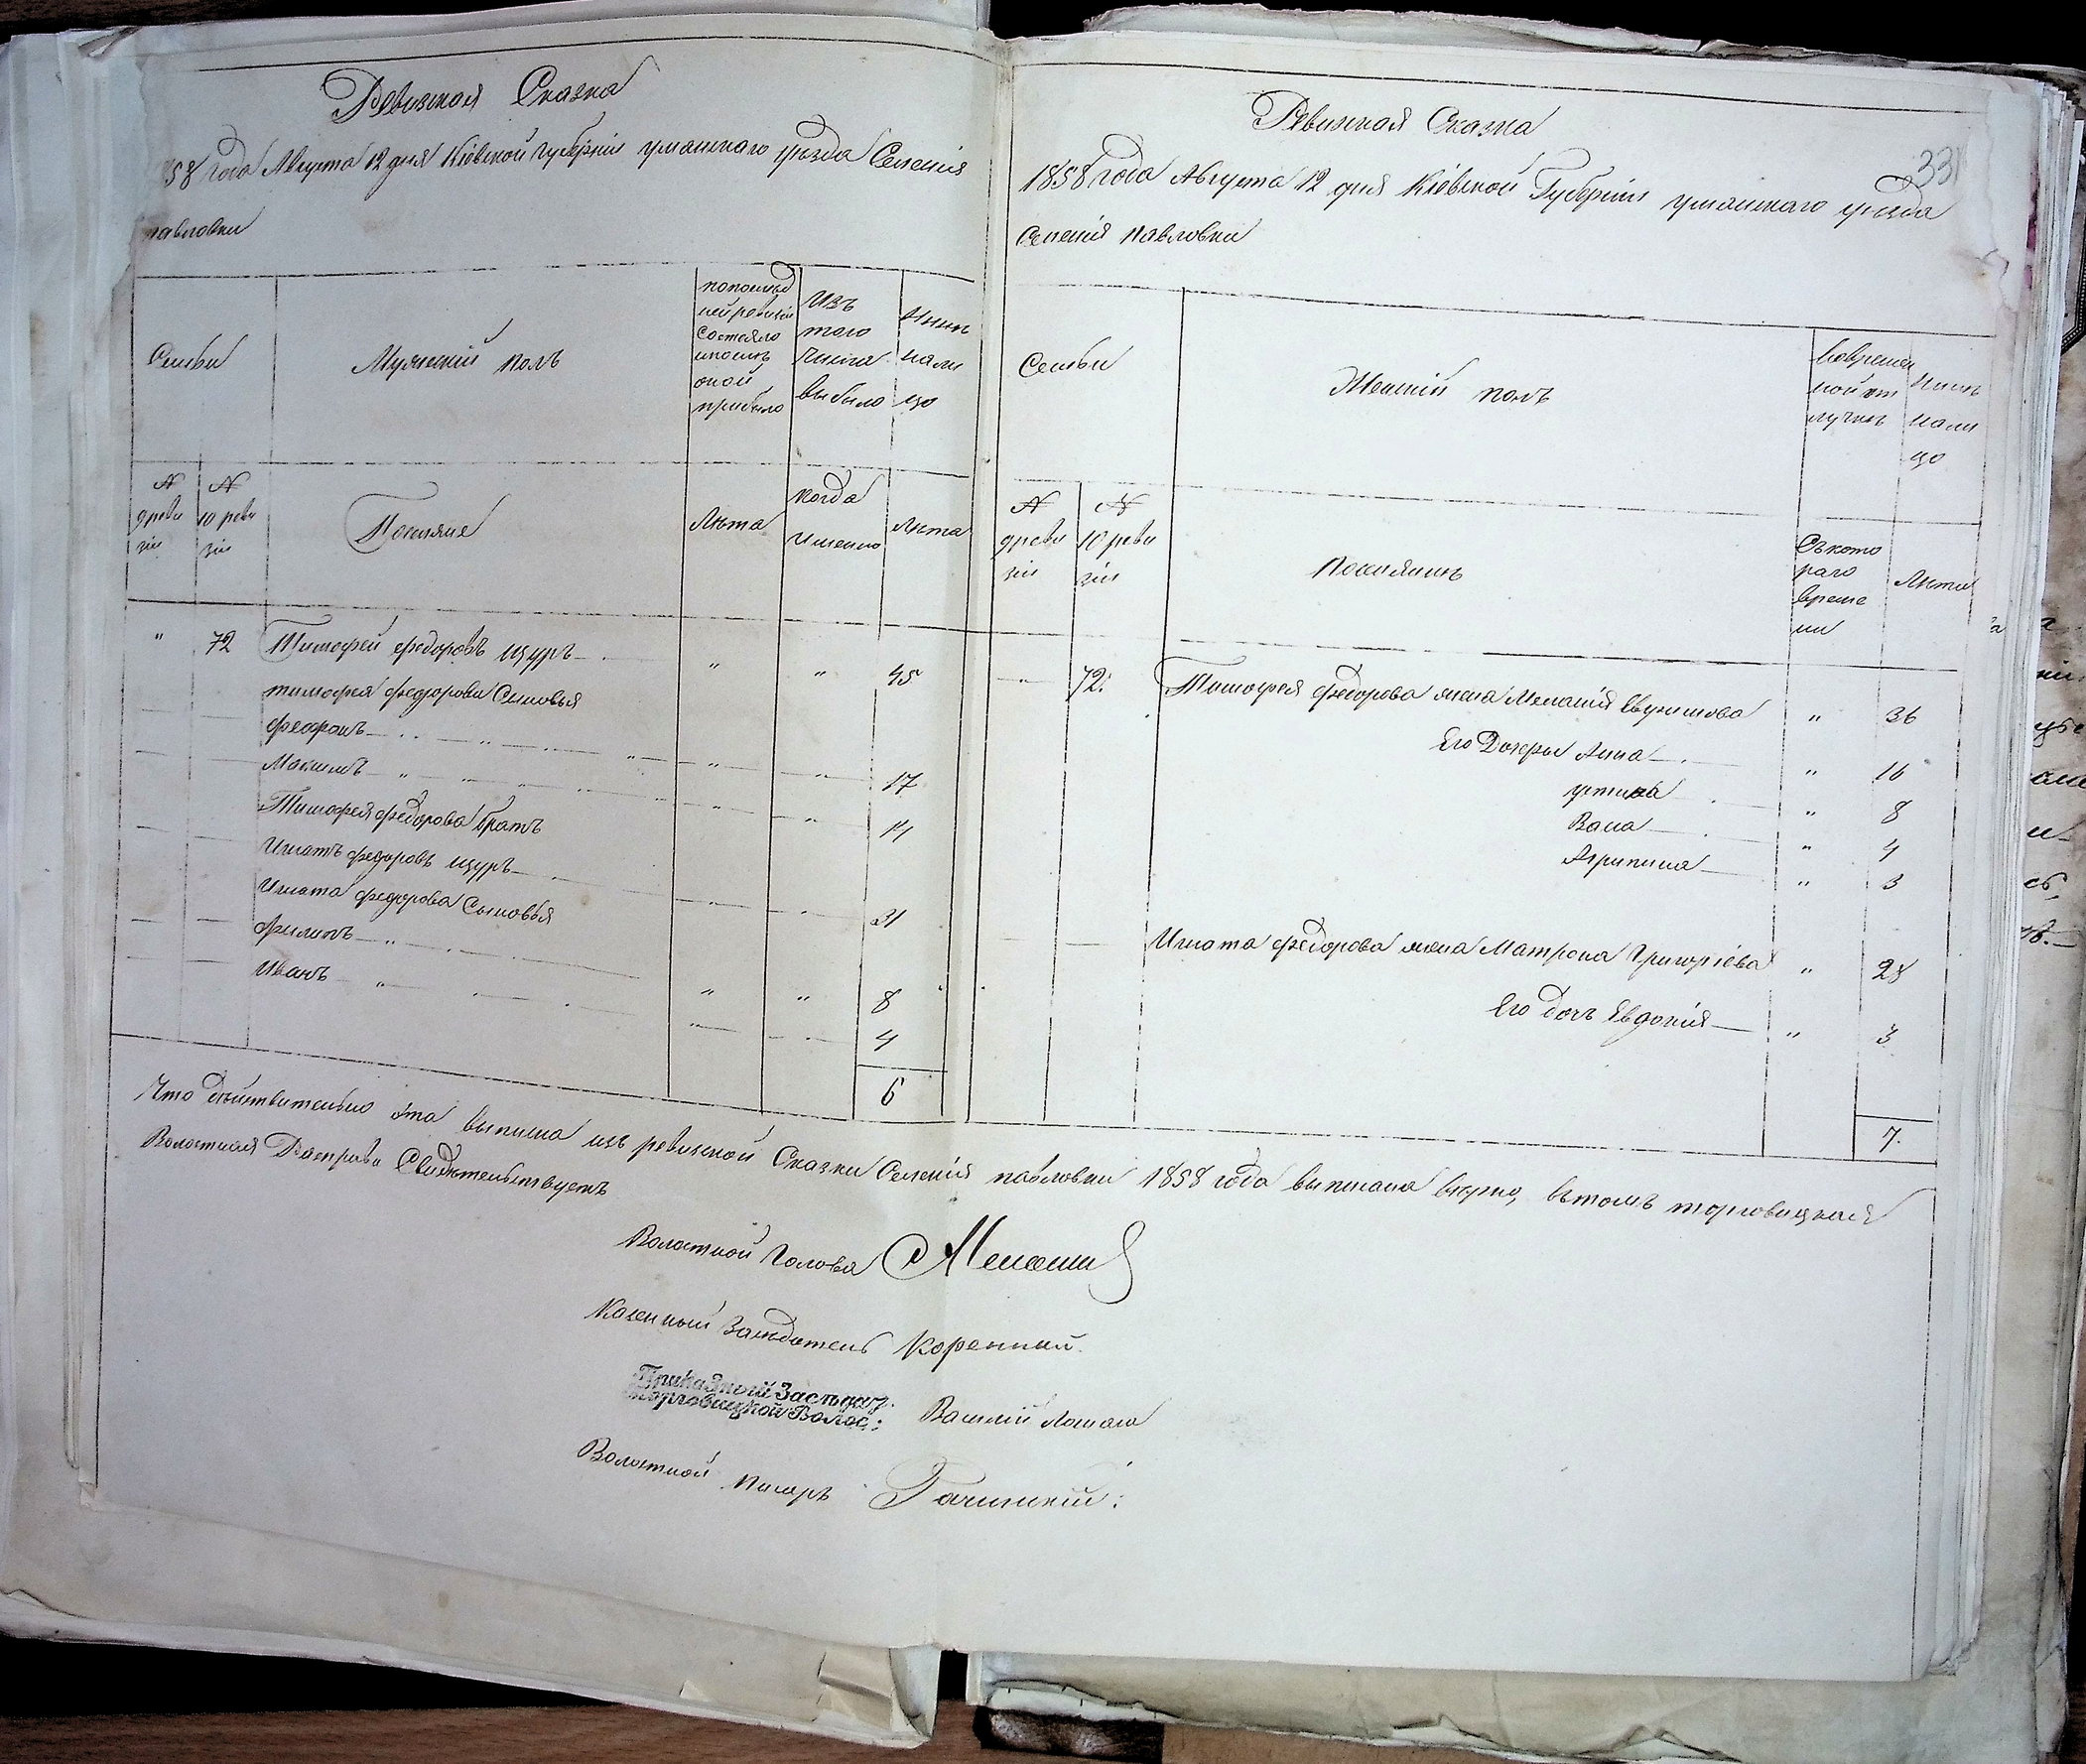 Ревизская Сказка
58 года Августа 12 дня Кіевской губерніи уманскаго уезда Селенія
павловки
Семьи
Мужескій полъ
попослѣд
ней ревизіи
состояло
ипослѣ
оной
прибыло
Изъ
того
числа
выбыло
Нынѣ
нали
цо
№
9 реви
зіи
№
10 реви
зіи
Поселяне
Лѣта
когда
именно
Лѣта
" 72 Тимофей федоровъ щуръ " " 45
тимофея федорова Сыновья
феофанъ " " 17
Максимъ " " 14
Тимофея федорова братъ
Игнатъ федоровъ щуръ " " 31
Игната федорова Сыновья
филипъ " " 8
Иванъ " " 4
6
331
Ревизская Сказка
1858 года Августа 12 дня Кіевской Губерніи уманскаго уезда
Селенія Павловки
Семьи
Женскій полъ
Вовремен
ной от
лучкѣ
Нынѣ
нали
цо
№
9 реви
зіи
№
10 реви
зіи
Поселянинъ
Съ кото
раго
време
ни
Лѣта
" 72. Тимофея федорова жена Меланія " 36
Его Дочеры Анна " 16
устина " 8
Васа " 4
Агрипина " 3
Игната федорова жена Матрона Григоріева " 28
Его дочь Евдокія " 3
7.
Что дѣйствительно эта выписка изъ ревизской Сказки Селенія павловки 1858 года выписана вѣрно, вътомъ торговицкая
Волостная Расправа Свидѣтельствуетъ
Волостной Голова
Казенный Засѣдатель Коренный.
Приказный Засѣдат:
Торговицкой Волос:
Василій
Волостной Писарь